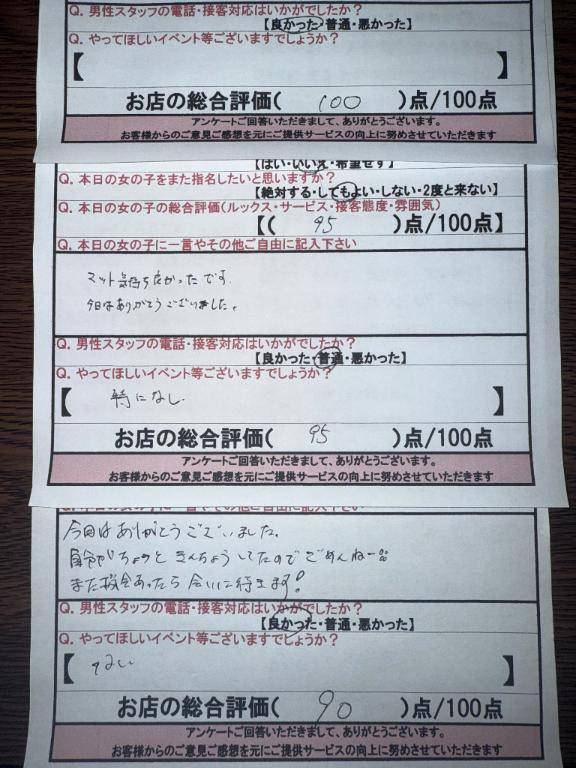 Q. 男性スタッフの電話・接客対応はいかがでしたか？
【良かった・普通・悪かった】
Q. やってほしいイベント等ございますでしょうか？
【 】
お店の総合評価( 100 )点/100点
アンケートご回答いただきまして、ありがとうございます。
お客様からのご意見ご感想を元にご提供サービスの向上に努めさせていただきます
【はい・いいえ・希望せず】
Q. 本日の女の子をまた指名したいと思いますか？
【絶対する・してもよい・しない・2度と来ない】
Q. 本日の女の子の総合評価(ルックス・サービス・接客態度・雰囲気)
【( 95 )点/100点】
Q. 本日の女の子に一言やその他ご自由に記入下さい
マット気持ち良かったです。
今日はありがとうございました。
Q. 男性スタッフの電話・接客対応はいかがでしたか？
【良かった・普通・悪かった】
Q. やってほしいイベント等ございますでしょうか？
【 特になし. 】
お店の総合評価( 95 )点/100点
アンケートご回答いただきまして、ありがとうございます。
お客様からのご意見ご感想を元にご提供サービスの向上に努めさせていただきます
Q. 本日の女の子に一言やその他ご自由に記入下さい
今日はありがとうございました。
自分がちょっときんちょうしてたのでごめんねー
また機会あったら会いに行きます!
Q. 男性スタッフの電話・接客対応はいかがでしたか？
【良かった・普通・悪かった】
Q. やってほしいイベント等ございますでしょうか？
【 ない 】
お店の総合評価( 90 )点/100点
アンケートご回答いただきまして、ありがとうございます。
お客様からのご意見ご感想を元にご提供サービスの向上に努めさせていただきます